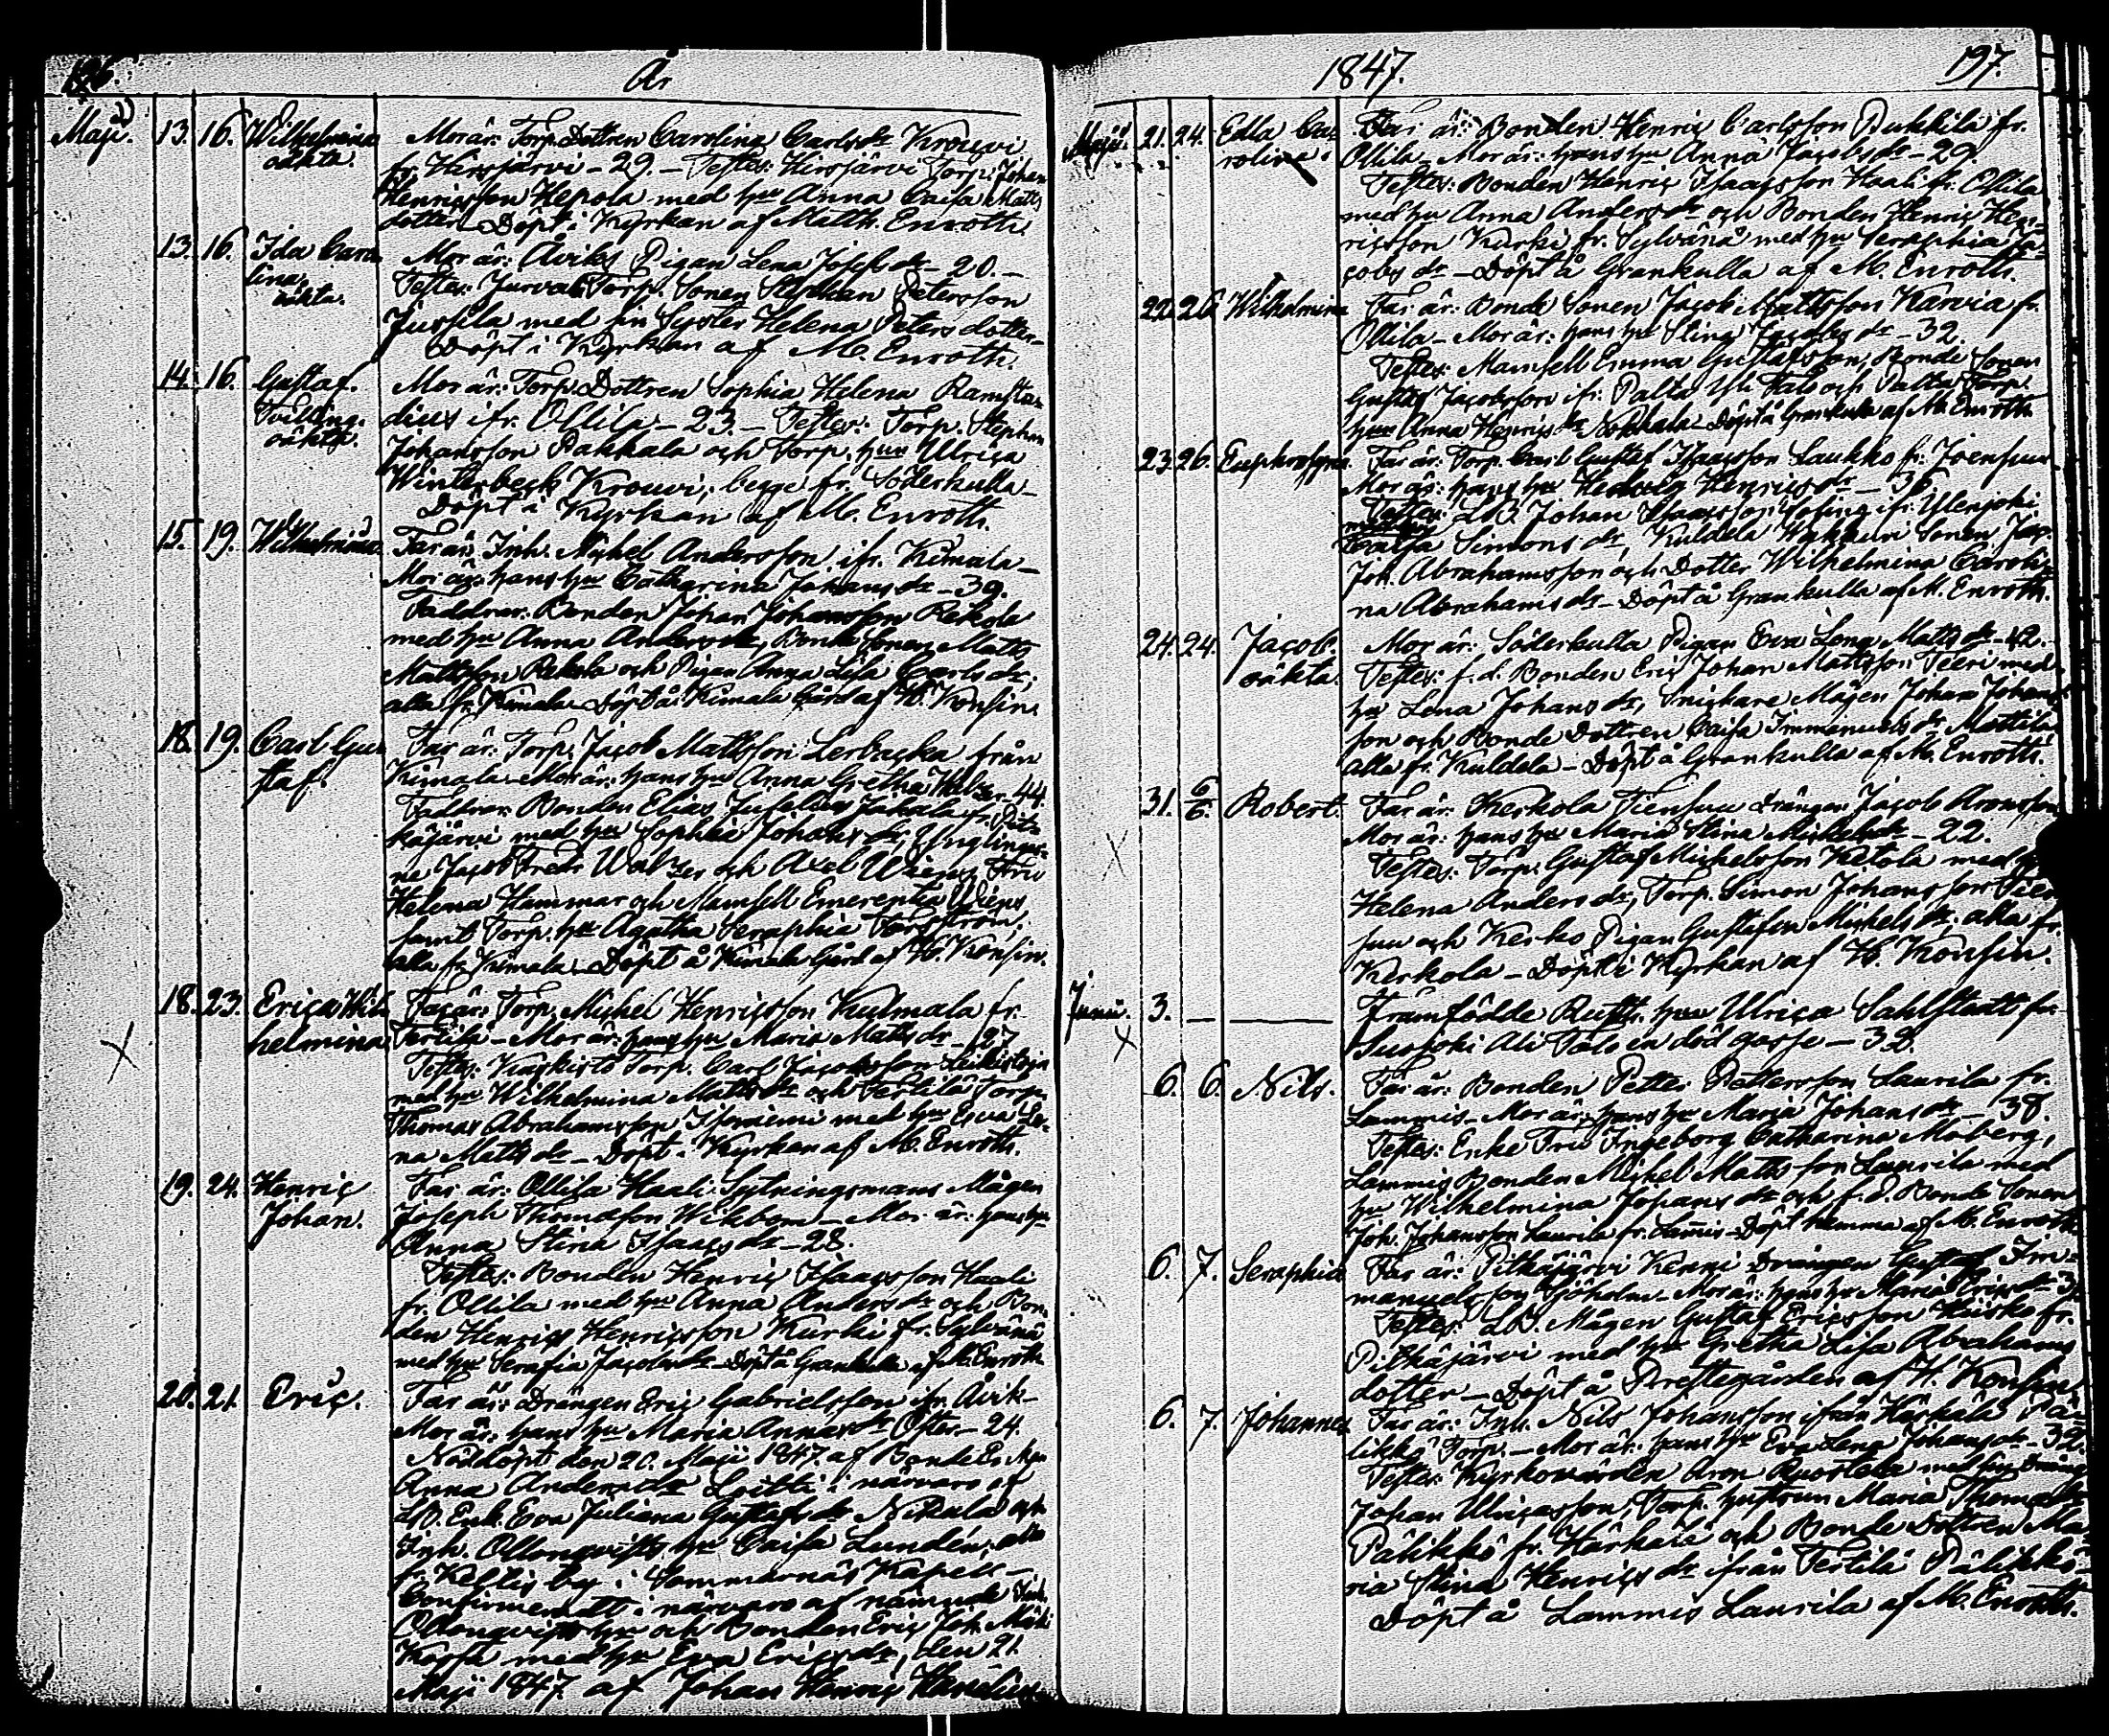 196.
År
Maji. 13. 16. Wilhelmina Mor är: Torp. Dottren Carolina Carlsdr Krouvi
oäkta. fr. Hirsjärvi - 29. - Testes: Hirsjärvi Torp. Johan
Henricsson Hepola med hu Anna Caisa Matts
dotter - Döpt i Kyrkan af Matth. Enroth.
13. 16. Ida Caro Mor är: Åviks Pigan Lena Josephdr - 20. -
lina, Testes: Torp. Sonen Stephan Petersson
oäkta. Jussila med sin Syster Helena Peters dotter -
Döpt i Kyrkan af M. Enroth.
14. 16. Gustaf. Mor är: Torp. Dottren Sophia Helena Ramsta-
Tvilling. dius ifr. Ollila - 23. - Testes: Torp. Stephan
oäkta. Johansson Pakkala och Torp. hun Ulrica
Winterbeck Krouvi, begge fr. Söderkulla -
Döpt i Kyrkan af M. Enroth.
15. 19. Wilhelmina. Far är: Inh. Michel Andersson ifr. Kimala -
Mor är: hans hu Catharina Johansdr - 39.
Faddrar: Bonden Johan Johansson Rekola
med hu Anna Andersdr, Bonde Sonen Matts
Mattsson Rekola och Pigan Anna Lisa Carlsdr,
alla fr. Kimala - Döpt å Kimala Gård af H. Konsin.
18. 19. Carl Gus Far är: Torp. Jacob Mattsson Lerbacka från
staf. Kimala - Mor är: hans hu Anna Gretha Walzer - 44.
Faddrar: Bonden Elias Juselius Jakala fr. Pit-
käjärvi med hu Sophia Johansdr, Ynglingar-
ne Jacob Fredr. Walzer och Axel Wiens, Fru
Helena Hammar och Mamsell Emerentia Wiens
samt Torp. hu Agatha Seraphia Forsström,
alla fr. Kimala - Döpt å Kimala Gård af H. Konsin.
18. 23. Erica Wil Far är: Torp. Michel Henricsson Kulmala fr.
helmina. Tertilä - Mor är: hans hu Maria Mattsdr - 27.
Testes: Kaskisto Torp. Carl Jacobsson
med hu Wilhelmina Mattsdr och Tertilä Torp.
Thomas Abrahamsson Isoniemi med hu Eva Le-
na Mattsdr - Döpt i Kyrkan af M. Enroth.
19. 24. Henric Far är: Ollila Haali Sytningsmans Mågen
Johan. Joseph Thomasson Wikbom - Mor är: hans hu
Anna Stina Isaacsdr - 28.
Testes: Bonden Henric Isaacsson Haali
fr. Ollila med hu Anna Andersdr och Bon-
den Henric Henricsson Kurki fr. Sylvänä
med hu Serafia Jacobsdr - Döpt å Grankulla af M. Enroth.
20. 21. Eric. Far är: Drängen Eric Gabrielsson ifr. Åvik -
Mor är: hans hu Maria Annasdr Öster - 24.
Nöddöpt den 20. Maji 1847. af
Anna Andersdr Loitti i närvaro af
Enk. Eva Juliana Gustafsdr Nikula och
Inh. Ollonqvists hu Caisa Lundén,
fr. by i Sommarnäs Kapell -
Confirmeradt i närvaro af nämnde Inh.
Ollonqvists hu och Bonden Eric Joh. Mäki
med hu Eva Ericsdr, den 21.
Maji 1847. af Johan Henric
1847.
197.
Maji. 21. 24. Edla Ca- Far är: Bonden Henric Carlsson Pukkila fr.
roline. Ollila - Mor är: hans hu Anna Jacobsdr - 29.
Testes: Bonden Henric Isaacsson Haali fr. Ollila
med hu Anna Andersdr och Bonden Henric Hen-
ricsson Kurki fr. Sylvänä med hu Seraphia Ja-
cobsdr - Döpt å Grankulla af M. Enroth.
22. 26. Wilhelmina Far är: Bonde Sonen Jacob Mattsson Karvia fr.
Ollila - Mor är: hans hu Stina Jacobsdr - 32.
Testes: Mamsell Emma Gustafsson, Bonde Sonen
Gustaf Jacobsson ifr. Palta Yli Talo och Palta Torp.
hun Anna Henricsdr Nokkala - Döpt å Grankulla af M. Enroth.
23. 26. Euphrosyne Far är: Torp. Carl Gustaf Isaacsson Laukko fr. Joensuu
Mor är: hans hu Hedvig Henricsdr - 36.
Testes: Johan Isaacsson ifr. Ylenjoki
Simonsdr, Kuldela Sonen Jac.
Joh. Abrahamsson och Dotter Wilhelmina Caroli-
na Abrahamsdr - Döpt å Grankulla af M. Enroth.
24. 24. Jacob. Mor är: Söderkulla Pigan Eva Lena Mattsdr - 42.
oäkta. Testes: f.d. Bonden Eric Johan Mattsson Teeri med
hu Lena Johansdr, Snickare Mågen Johan Johans-
son och Bonde Dottren Caisa Immanuelsdr Mattila
alla fr. Kuldela - Döpt å Grankulla af M. Enroth.
31. 6/6. Robert. Far är: Kerkola Tiensuu Drängen Jacob Aronsson
Mor är: hans hu Maria Stina Michelsdr - 22.
Testes: Torp. Gustaf Michelsson Ketola med hu
Helena Andersdr, Torp. Simon Johansson Tien-
suu och Kerko Pigan Gustafva Michelsdr, alla fr.
Kerkola - Döpt i Kyrkan af H. Konsin.
Junii. 3. — — Framfödde Rustth. hun Ulrica Sahlstedt fr.
Susjoki Ali Talo en död gosse - 32.
6. 6. Nils. Far är: Bonden Petter Pettersson Laurila fr.
Lammis - Mor är: hans hu Maria Johansdr - 38.
Testes: Enke Fru Ingeborg Catharina Moberg,
Lammis Bonden Michel Mattsson Laurila med
hu Wilhelmina Johansdr och f.d. Bonde Sonen
Joh. Johansson Laurila fr. Lamis - Döpt hemma af M. Enroth.
6. 7. Seraphia Far är: Pitkäjärvi Kenni Drängen Gustaf Im-
manuelsson Sjöholm - Mor är: hans hu Maria Ericsdr
Testes: Mågen Gustaf Ericsson fr.
Pitkäjärvi med hu Gretha Lisa Abrahams
dotter - Döpt å Prestegården af H. Konsin.
6. 7. Johannes Far är: Inh. Nils Johansson ifrån Härkälä Pä-
likkö Torp. - Mor är: hans hu Eva Lena Johansdr - 32.
Testes: Kyrkovärden Aron med sin Dräng
Johan Ulricasson, Torp. hustrun Maria Thomasdr
Pälikkö fr. Härkälä och Bonde Dottren Ma-
ria Stina Henricsdr ifrån Tertilä Pälikkö -
Döpt å Lammis Laurila af M. Enroth.